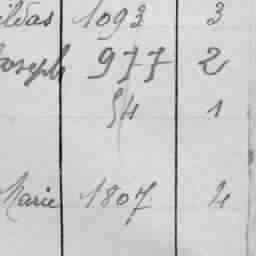 ildas 1093 3
Joseph 977 2
54 1
Marie 1807 4